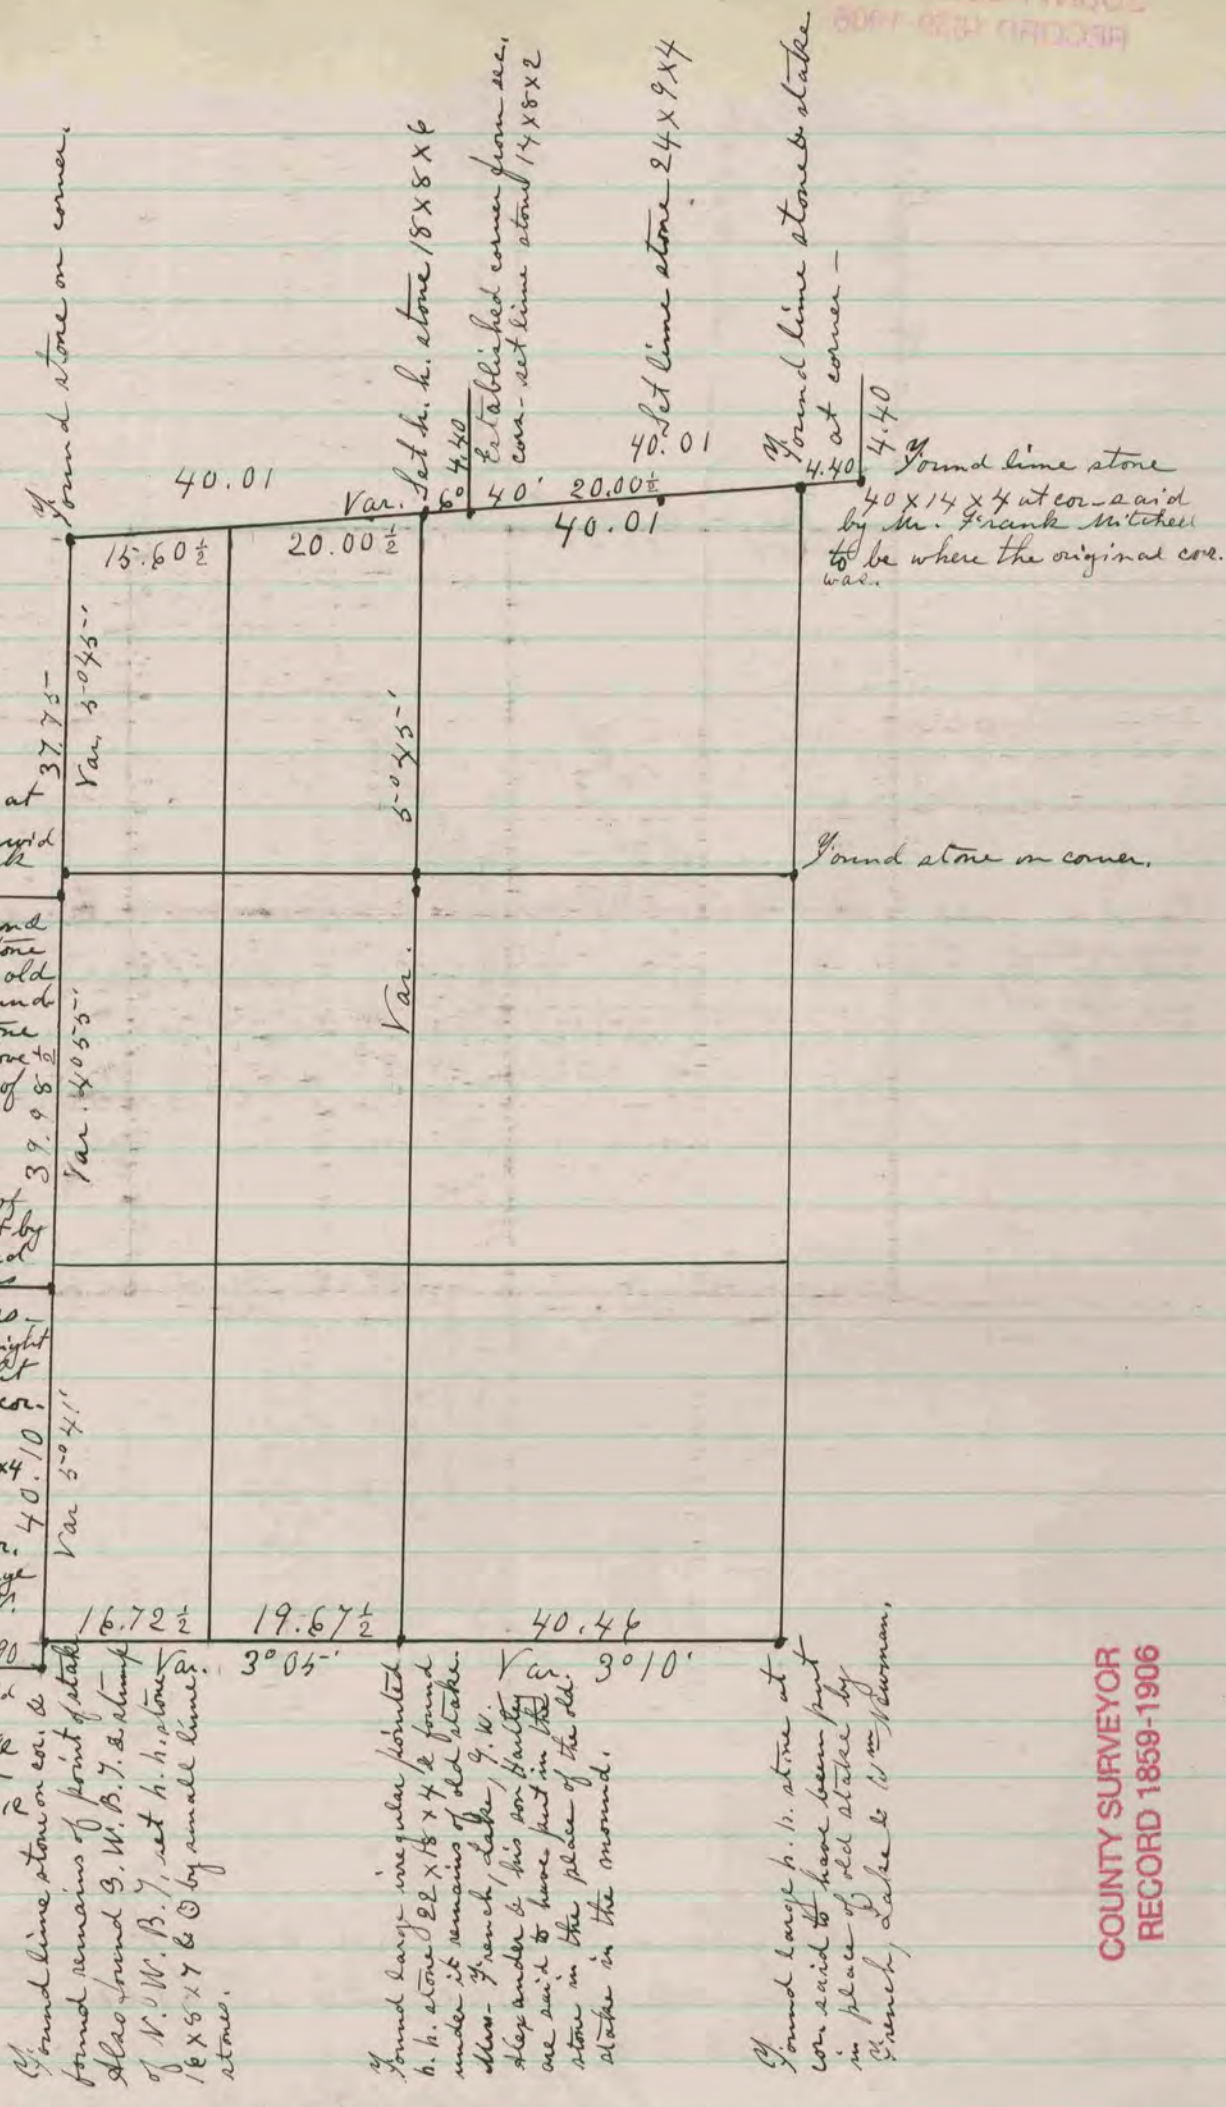 RECORD 1859-1906
Found stone on corner.
Set h. h. stone 18 X 8 X 6
Established corner from sec.
cors - set lime stone 14 X 8 X 2
Set lime stone 24 X 9 X 4
Found lime stone & stake
at corner -
40.01
Var. 6° 40'
4.40
20.00½
40.01
4.40
4.40
15.60½
20.00½
40.01
Found lime stone
40 X 14 X 4 at cor - said
by Mr. Frank Mitchell
to be where the original cor.
was.
37.75
Var. 5° 45'
5° 45'
at
Found stone on corner.
old
39.98½
of
Var. 4° 55'
Var.
by
right
cor.
x4
40.10
Var 5° 41'
90
16.72½
19.67½
40.46
Var. 3° 05'
Var 3° 10'
Found lime stone on cor. &
found remains of point of stake
Also found S. W. B. T. a stump
of N. W. B. T, set h. h. stone
16 X 8 X 7 & by small lime
stones.
Found large irregular pointed
h. h. stone 22 X 18 X 4 & found
under it remains of old stake.
Mess- French, Lake, G. W.
Alexander & his son Hartley
are said to have put in the
stone in the place of the old
stake in the mound.
Found large h. h. stone at
cor. said to have been put
in place of old stake by
French, Lake & Wm Newman.
COUNTY SURVEYOR
RECORD 1859-1906